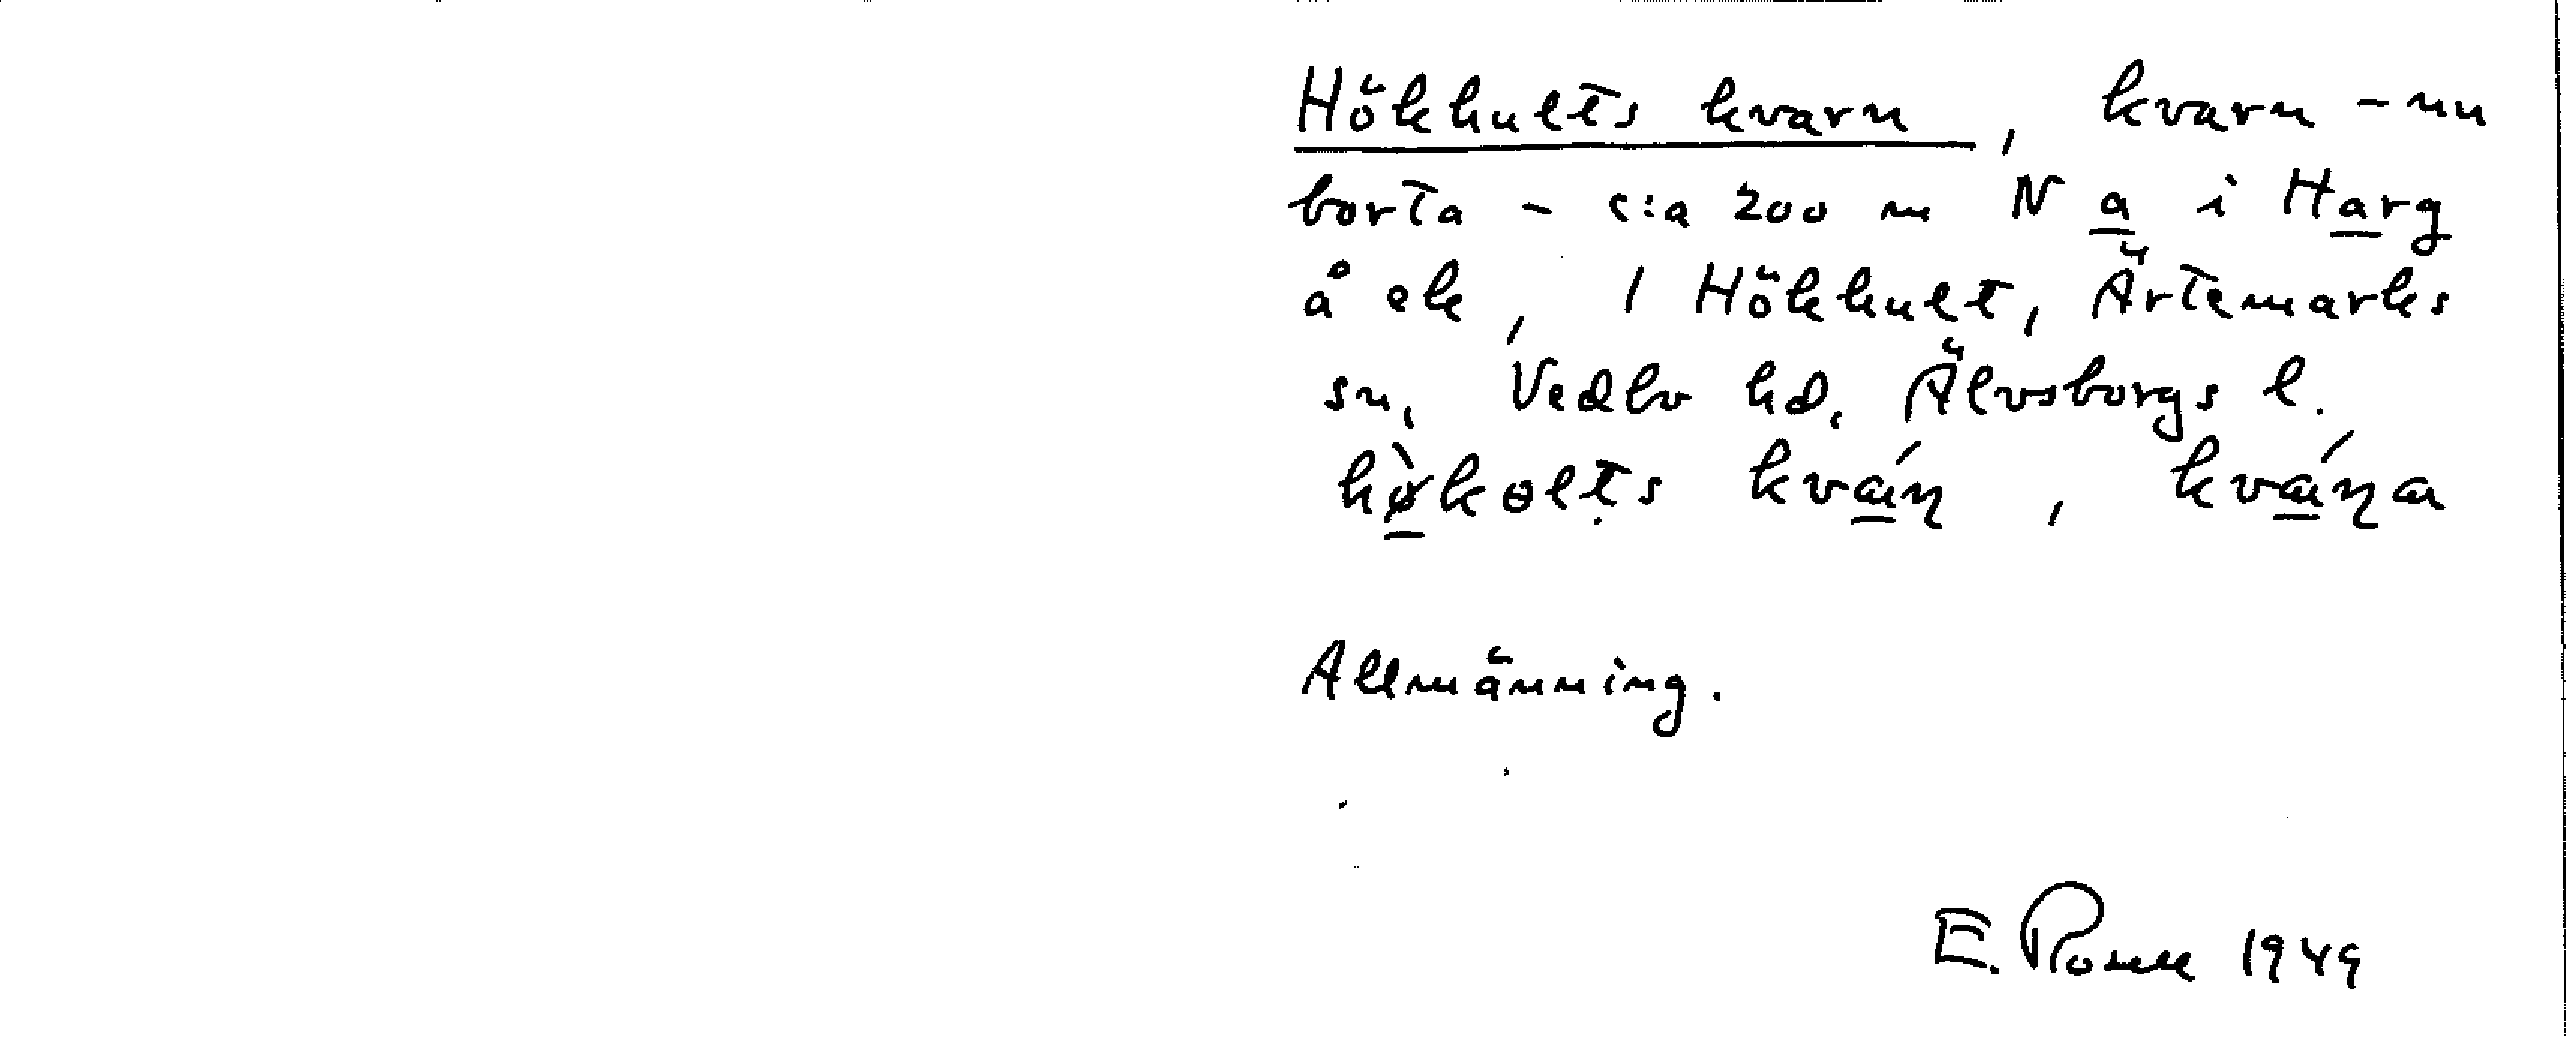 Hökhults kvarn, kvarn – nu
borta – c:a 200 m N a i Harg
å ek, 1 Hökhult, Ärtemarks
sn, Vedbo hd, Älvsborgs l.
hø̀kɵlts kváɳ, kváɳa
Allmänning.
E. 1949